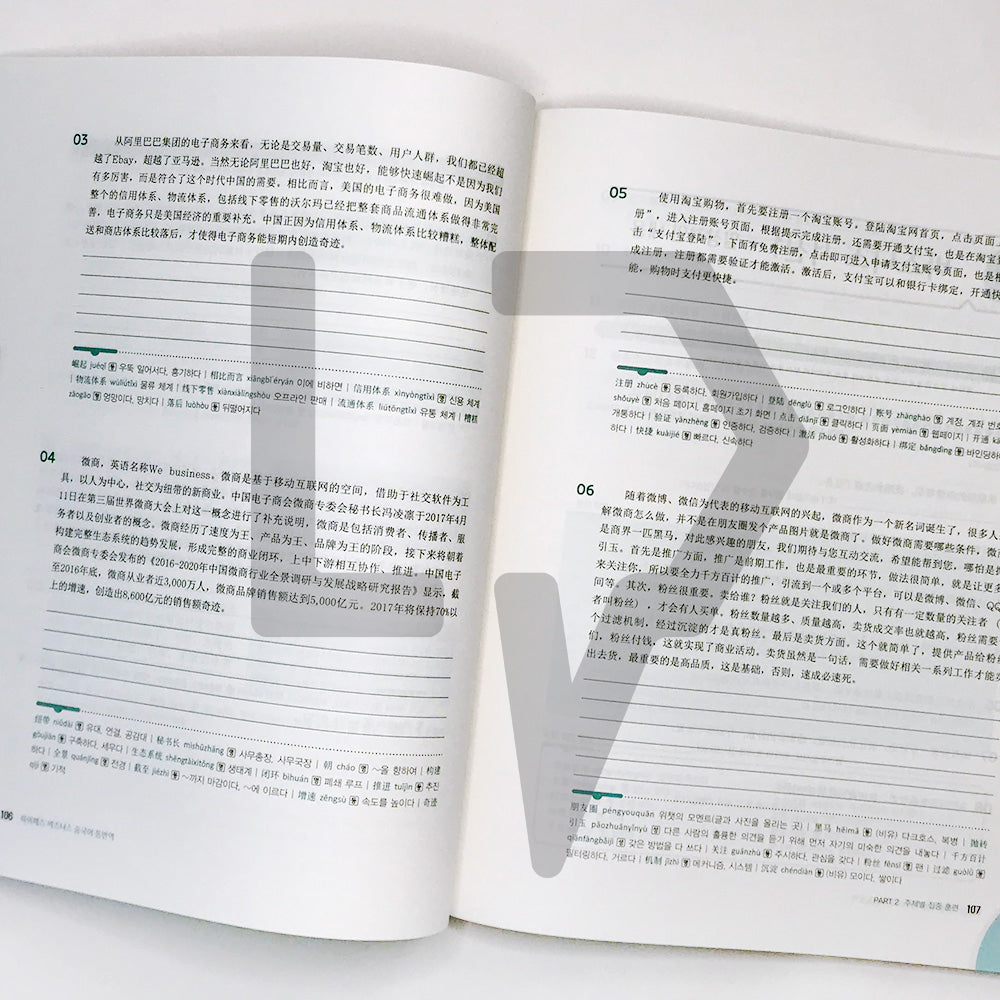 03 从阿里巴巴集团的电子商务来看，无论是交易量、交易笔数、用户人群，我们都已经超
越了Ebay，超越了亚马逊。当然无论阿里巴巴也好，淘宝也好，能够快速崛起不是因为我们
有多厉害，而是符合了这个时代中国的需要。相比而言，美国的电子商务很难做，因为美国
整个的信用体系、物流体系，包括线下零售的沃尔玛已经把整套商品流通体系做得非常完
善，电子商务只是美国经济的重要补充。中国正因为信用体系、物流体系比较糟糕，整体配
送和商店体系比较落后，才使得电子商务能短期内创造奇迹。
崛起 juéqǐ 동 우뚝 일어서다, 흥기하다 | 相比而言 xiāngbǐ'éryán 이에 비하면 | 信用体系 xìnyòngtǐxì 명 신용 체계
| 物流体系 wùliútǐxì 물류 체계 | 线下零售 xiànxiàlíngshòu 오프라인 판매 | 流通体系 liútōngtǐxì 유통 체계 | 糟糕
zāogāo 형 엉망이다, 망치다 | 落后 luòhòu 동 뒤떨어지다
04 微商，英语名称We business。微商是基于移动互联网的空间，借助于社交软件为工
具，以人为中心，社交为纽带的新商业。中国电子商会微商专委会秘书长冯凌凛于2017年4月
11日在第三届世界微商大会上对这一概念进行了补充说明，微商是包括消费者、传播者、服
务者以及创业者的概念。微商经历了速度为王、产品为王、品牌为王的阶段，接下来将朝着
构建完整生态系统的趋势发展，形成完整的商业闭环，上中下游相互协作、推进。中国电子
商会微商专委会发布的《2016-2020年中国微商行业全景调研与发展战略研究报告》显示，截
至2016年底，微商从业者近3,000万人，微商品牌销售额达到5,000亿元。2017年将保持70%以
上的增速，创造出8,600亿元的销售额奇迹。
纽带 niǔdài 명 유대, 연결, 공감대 | 秘书长 mìshūzhǎng 명 사무총장, 사무국장 | 朝 cháo 동 ~을 향하여 | 构建
gòujiàn 동 구축하다, 세우다 | 生态系统 shēngtàixìtǒng 명 생태계 | 闭环 bìhuán 명 폐쇄 루프 | 推进 tuījìn 동 추진
하다 | 全景 quánjǐng 명 전경 | 截至 jiézhì 동 ~까지 마감이다, ~에 이르다 | 增速 zēngsù 동 속도를 높이다 | 奇迹
qíjì 명 기적
106
05 使用淘宝购物，首先要注册一个淘宝账号。登陆淘宝网首页，点击页面上
册”，进入注册账号页面，根据提示完成注册。还需要开通支付宝，也是在淘宝
击“支付宝登陆”，下面有免费注册，点击即可进入申请支付宝账号页面，也是根
成注册，注册都需要验证才能激活。激活后，支付宝可以和银行卡绑定，开通快
能，购物时支付更快捷。
注册 zhùcè 동 등록하다, 회원가입하다 | 登陆 dēnglù 동 로그인하다 | 账号 zhànghào 명 계정, 계좌 번호
shǒuyè 명 처음 페이지, 홈페이지 초기 화면 | 点击 diǎnjī 동 클릭하다 | 页面 yèmiàn 명 웹페이지 | 开通
개통하다 | 验证 yànzhèng 동 인증하다, 검증하다 | 激活 jīhuó 동 활성화하다 | 绑定 bǎngdìng 동 바인딩하
하다 | 快捷 kuàijié 형 빠르다, 신속하다
06 随着微博、微信为代表的移动互联网的兴起，微商作为一个新名词诞生了，很多人
解微商怎么做，并不是在朋友圈发个产品图片就是微商了。做好微商需要哪些条件，微
是商界一匹黑马，对此感兴趣的朋友，我们期待与您互动交流，希望能帮到您，哪怕是抛
引玉。首先是推广方面，推广是前期工作，也是最重要的环节，做法很简单，就是让更多
来关注你，所以要全力千方百计的推广，引流到一个或多个平台，可以是微博、微信、QQ
间等。其次，粉丝很重要。卖给谁？粉丝就是关注我们的人，只有有一定数量的关注者（
者叫粉丝），才会有人买单。粉丝数量越多、质量越高，卖货成交率也就越高，粉丝需要
个过滤机制，经过沉淀的才是真粉丝。最后是卖货方面。这个就简单了，提供产品给粉丝
们，粉丝付钱，这就实现了商业活动。卖货虽然是一句话，需要做好相关一系列工作才能
出去货，最重要的是高品质，这是基础，否则，速成必速死。
朋友圈 péngyouquān 위챗의 모멘트(글과 사진을 올리는 곳) | 黑马 hēimǎ 명 (비유) 다크호스, 복병 | 抛砖
引玉 pāozhuānyǐnyù 성 다른 사람의 훌륭한 의견을 듣기 위해 먼저 자기의 미숙한 의견을 내놓다 | 千方百计
qiānfāngbǎijì 성 갖은 방법을 다 쓰다 | 关注 guānzhù 동 주시하다, 관심을 갖다 | 粉丝 fěnsī 명 팬 | 过滤 guòlǜ 동
필터링하다, 거르다 | 机制 jīzhì 명 메커니즘, 시스템 | 沉淀 chéndiàn 동 (비유) 모이다, 쌓이다
PART 2 주제별 집중 훈련 107